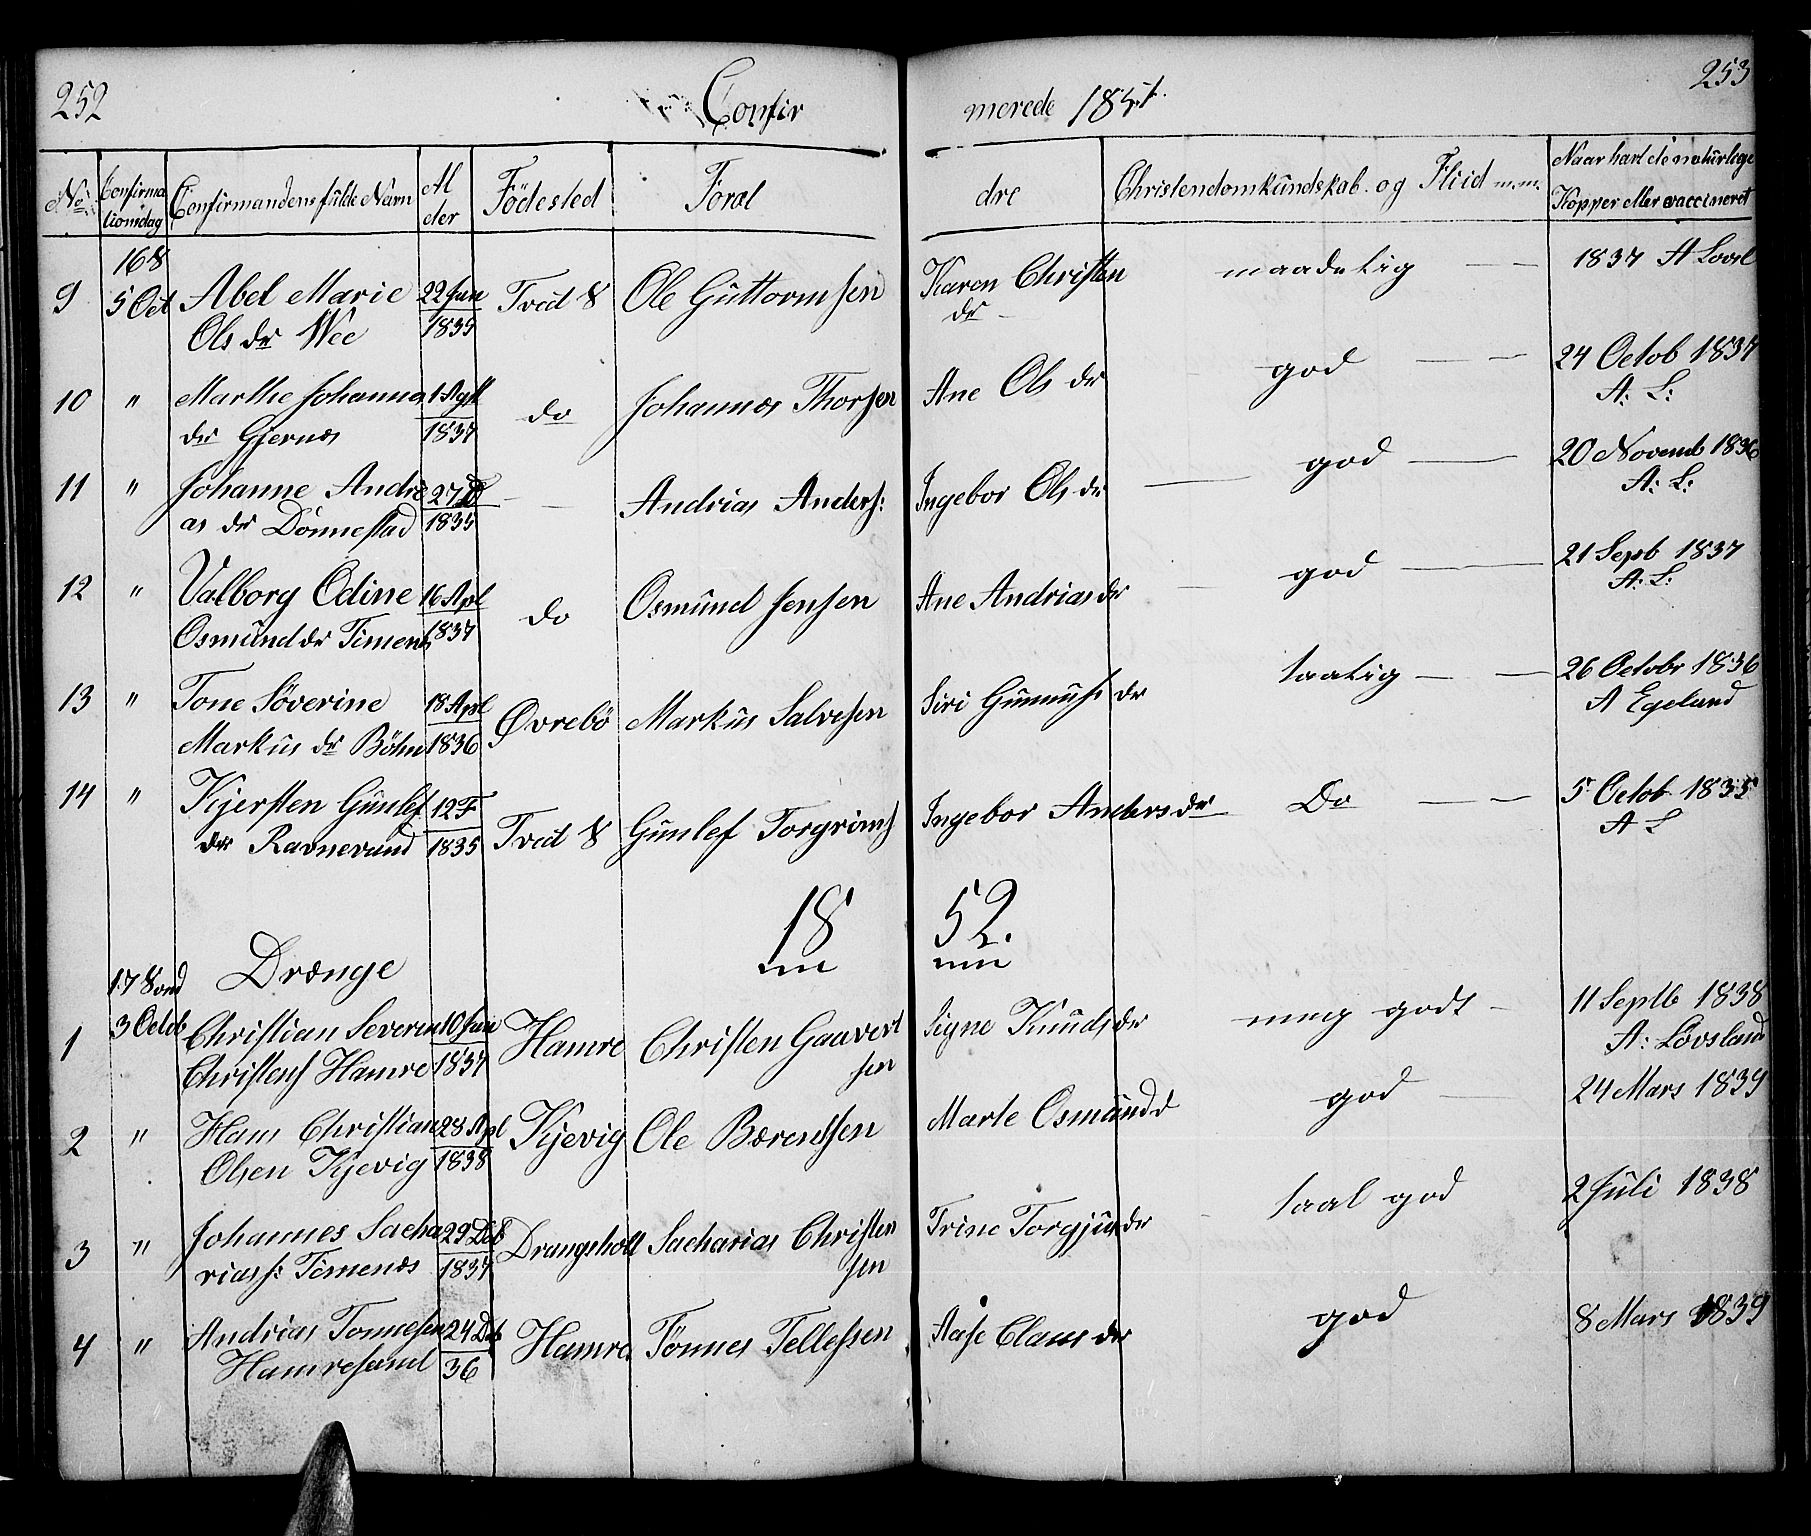 252
Confir
merede 1851.
253
No
Confirma
tionsdag
Confirmandens fulde Navn
Al
der
Födested
Foræl
dre
Christendomkundskab. og Fliid m.m.
Naar havt de naturlige
Kopper eller vaccineret
9
16 S
5 Oct
Abel Marie
Ols dr Wee
22 Jun
1835
Tved S
Ole Guttormsen
Karen Christen
dr
maadelig
1837 A Lovsl
10
"
Marthe Johannes
dr Gjernæs
1 Agst
1837
do
Johannes Thorsen
Ane Ols dr
god
24 Octob 1837
A: L:
11
"
Johanne Andre
as dr Dönnestad
27 D
1835
Andrias Anders:
Ingebor Ols dr
god
20 Novemb 1836
A: L:
12
"
Valborg Odine
Osmund dr Timenes
16 Apl
1837
do
Osmund Jensen
Ane Andrias dr
god
21 Septb 1837
A: L:
13
"
Tone Söverine
Markus dr Böhn
18 Apl
1836
Øvrebö
Markus Salvesen
Siri Gunnufs dr
taalig
26 Octobr 1836
A Egeland
14
"
Kjersten Gunlef
dr Ravnevand
12 F
1835
Tved S
Gunlef Torgrims
Ingebor Anders dr
Do
5 Octob 1835
A L
18
52.
Drænge
17 Sond
3 Octob
1
Christian Severin
Christens Hamre
10 Jun
1837
Hamre
Christen Gauvert
sen
Signe Knuds dr
meg godt
11 Septb 1838
A: Lovsland
2
"
Hans Christian
Olsen Kjevig
28 Apl
1838
Kjevig
Ole Bærentsen
Marte Osmunds d
god
24 Mars 1839
3
"
Johannes Sacha
riass: Timenæs
29 Dcb
1837
Drangsholt
Sacharias Christen
sen
Trine Torgjus dr
taal god
2 Juli 1838
4
"
Andrias Tonnesen
Hamresand
24 Dcb
36
Hamre
Tönnes Tellefsen
Aase Claus dr
god
8 Mars 1839